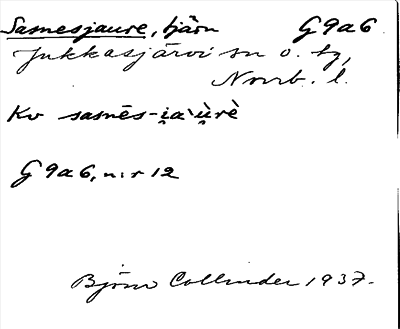 Sasnesjaure, tjärn G9a6
Jukkasjärvi sn o. tg,
Norrb. l.
Kv sasnēs-i̯a`ùrè
G9a6, n:r 12
Björn Collinder 1937.